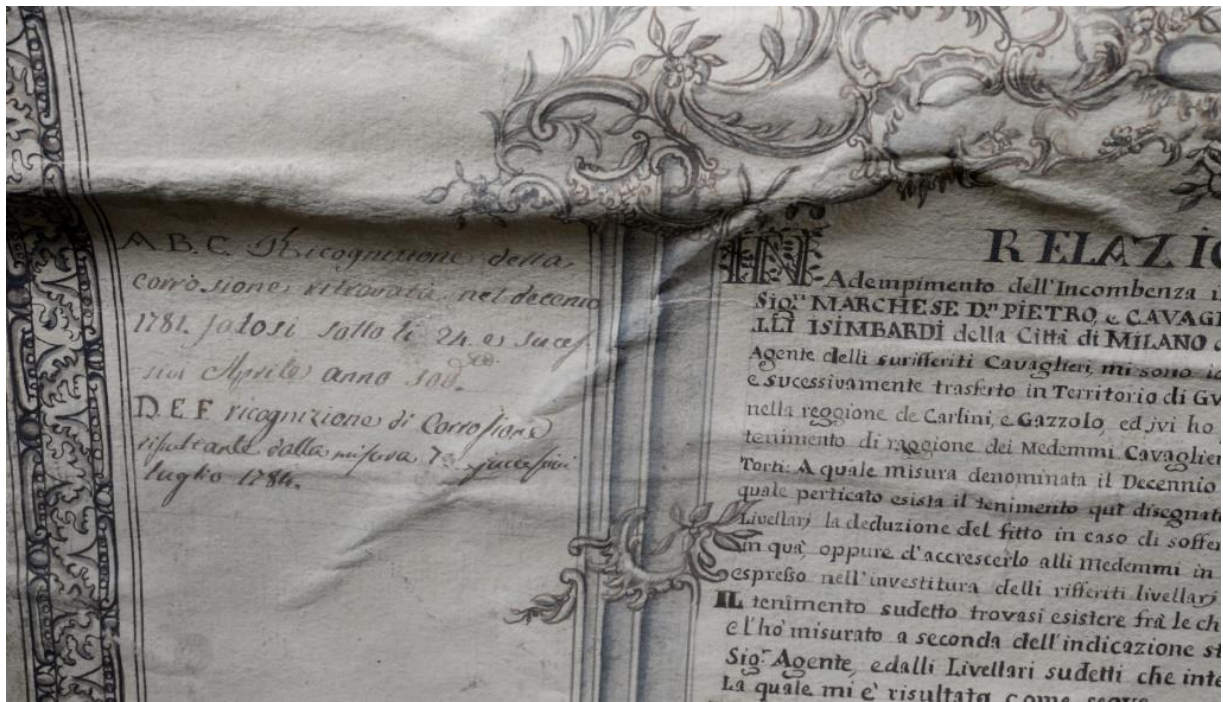 A.B.C. Ricognizione della
corrosione ritrovata nel decenio
1781. fatosi sotto li 24. e sucef-
sivi Aprile anno sod.º
D.E.F ricognizione di Corrosione
risultante dalla misura 7. successivi
luglio 1784.
RELAZIO
IN Adempimento dell'Incombenza
Sig.ri MARCHESE D.n PIETRO, e CAVAGL
LLI ISIMBARDI della Città di MILANO
Agente delli surifferiti Cavaglieri, mi sono
e sucessivamente trasferto in Territorio di GV
nella reggione de Carlini, e Gazzolo, ed jvi ho
tenimento di raggione dei Medemmi Cavaglier
Torti: A quale misura denominata il Decennio
quale perticato esista il tenimento qui disegnat
Livellarj la deduzione del fitto in caso di soffer
in quà, oppure d'accrescerlo alli medemmi in
espresso nell'investitura delli rifferiti livellarj
IL tenimento sudetto trovasi esistere frà le ch
e l'hò misurato a seconda dell'indicazione st
Sig.r Agente, e dalli Livellari sudetti che inte
La quale mi è risultata come segue